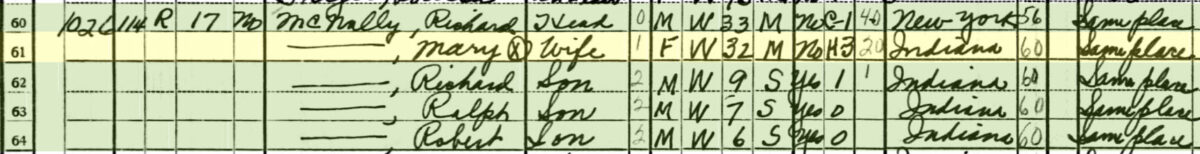 60 1026 114 R 17 No McNally, Richard Head 0 M W 33 M No C-1 40 New York 56 Same place
61 ——, Mary ⓧ Wife 1 F W 32 M No H3 20 Indiana 60 Same place
62 ——, Richard Son 2 M W 9 S Yes 1 1 Indiana 60 Same place
63 ——, Ralph Son 2 M W 7 S Yes 0 Indiana 60 Same place
64 ——, Robert Son 2 M W 6 S Yes 0 Indiana 60 Same place